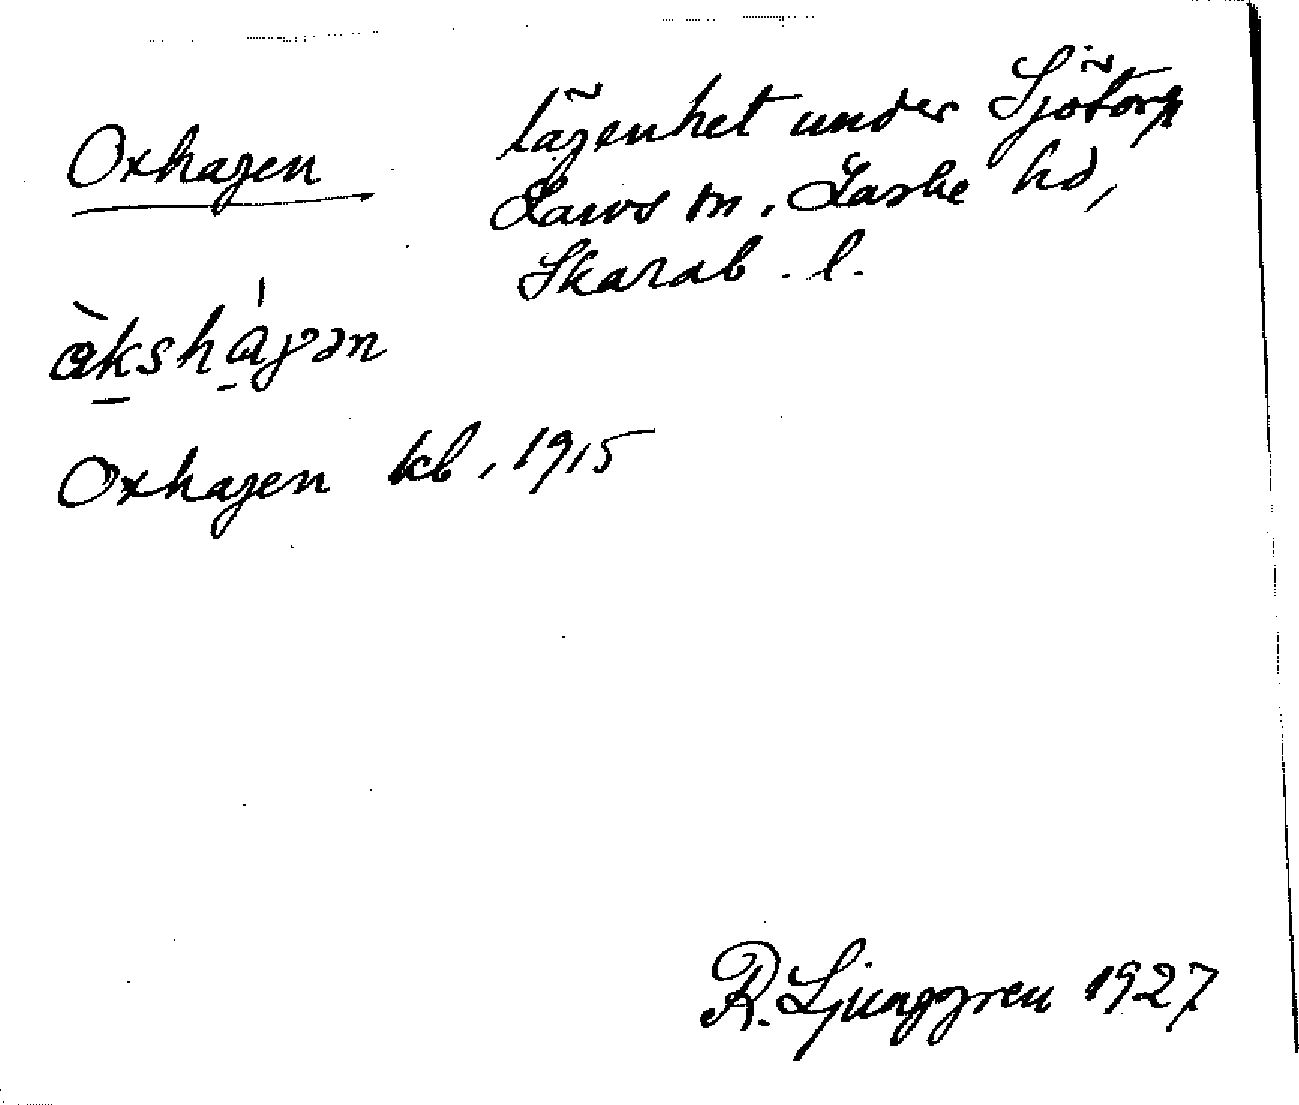 Oxhagen lägenhet under Sjötorp
Larvs sn. Laske hd,
Skarab. l.
àkshágən
Oxhagen kb, 1915
R. Ljunggren 1927